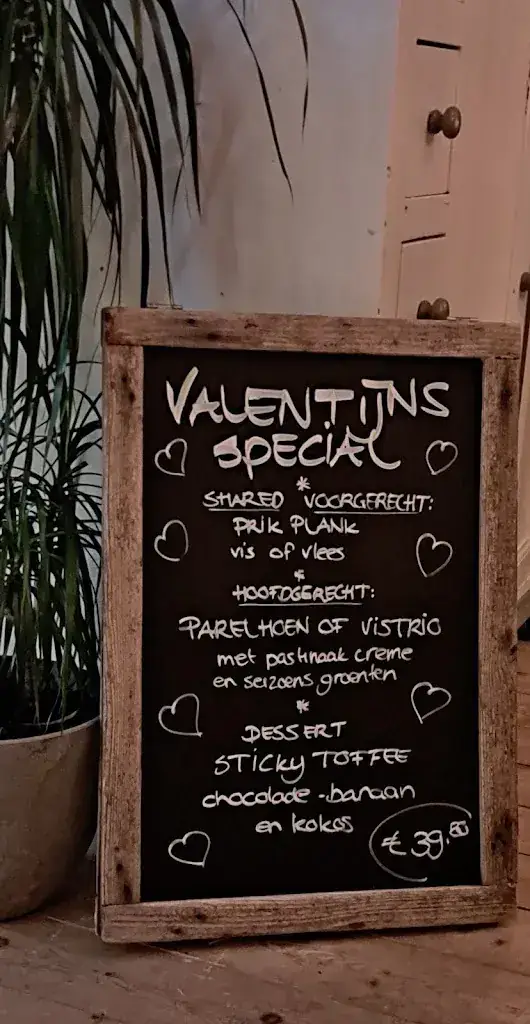 VALENTIJNS
SPECIAL
*
SHARED VOORGERECHT:
PRIK PLANK
vis of vlees
*
HOOFDGERECHT:
PARELHOEN OF VISTRIO
met pastinaak creme
en seizoens groenten
*
DESSERT
STICKY TOFFEE
chocolade - banaan
en kokos
€ 39,80